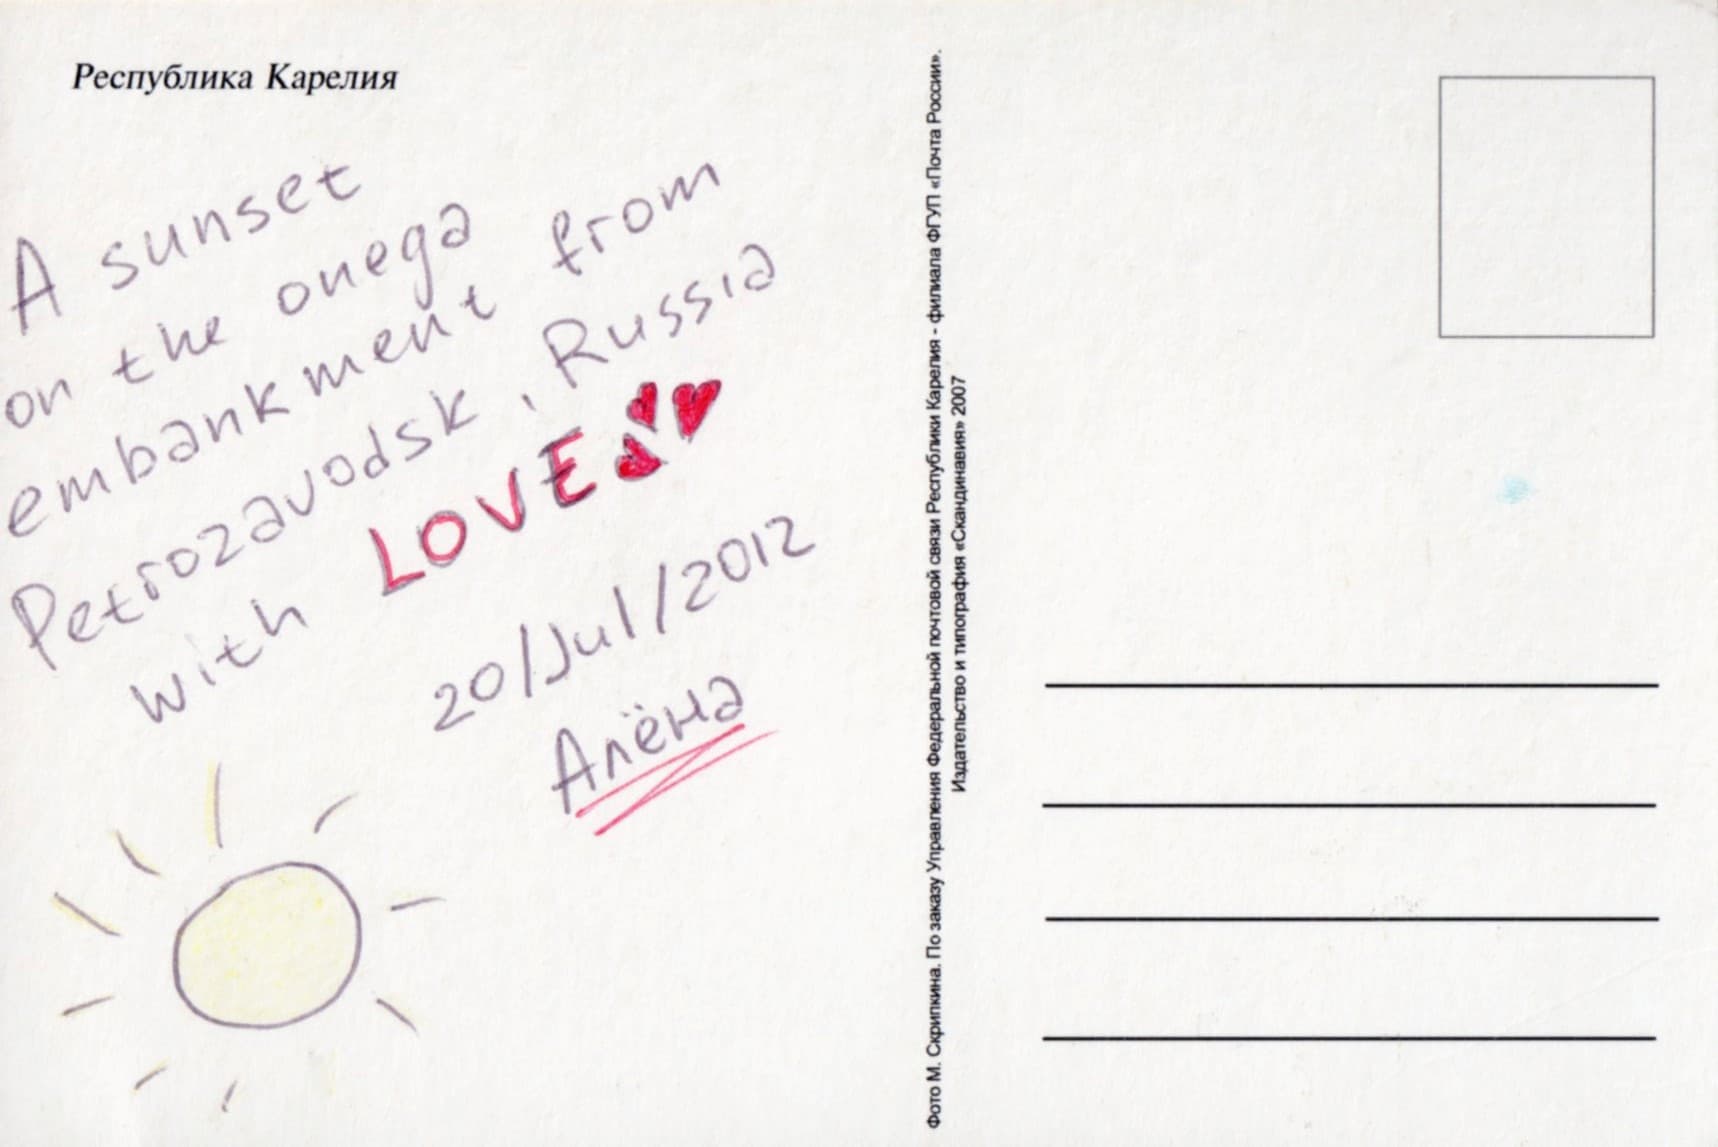 Республика Карелия
A sunset
on the onega
embankment from
Petrozavodsk, Russia
with LOVE
20/Jul/2012
Алёна
Фото М. Скрипкина. По заказу Управления Федеральной почтовой связи Республики Карелия - филиала ФГУП «Почта России».
Издательство и типография «Скандинавия» 2007